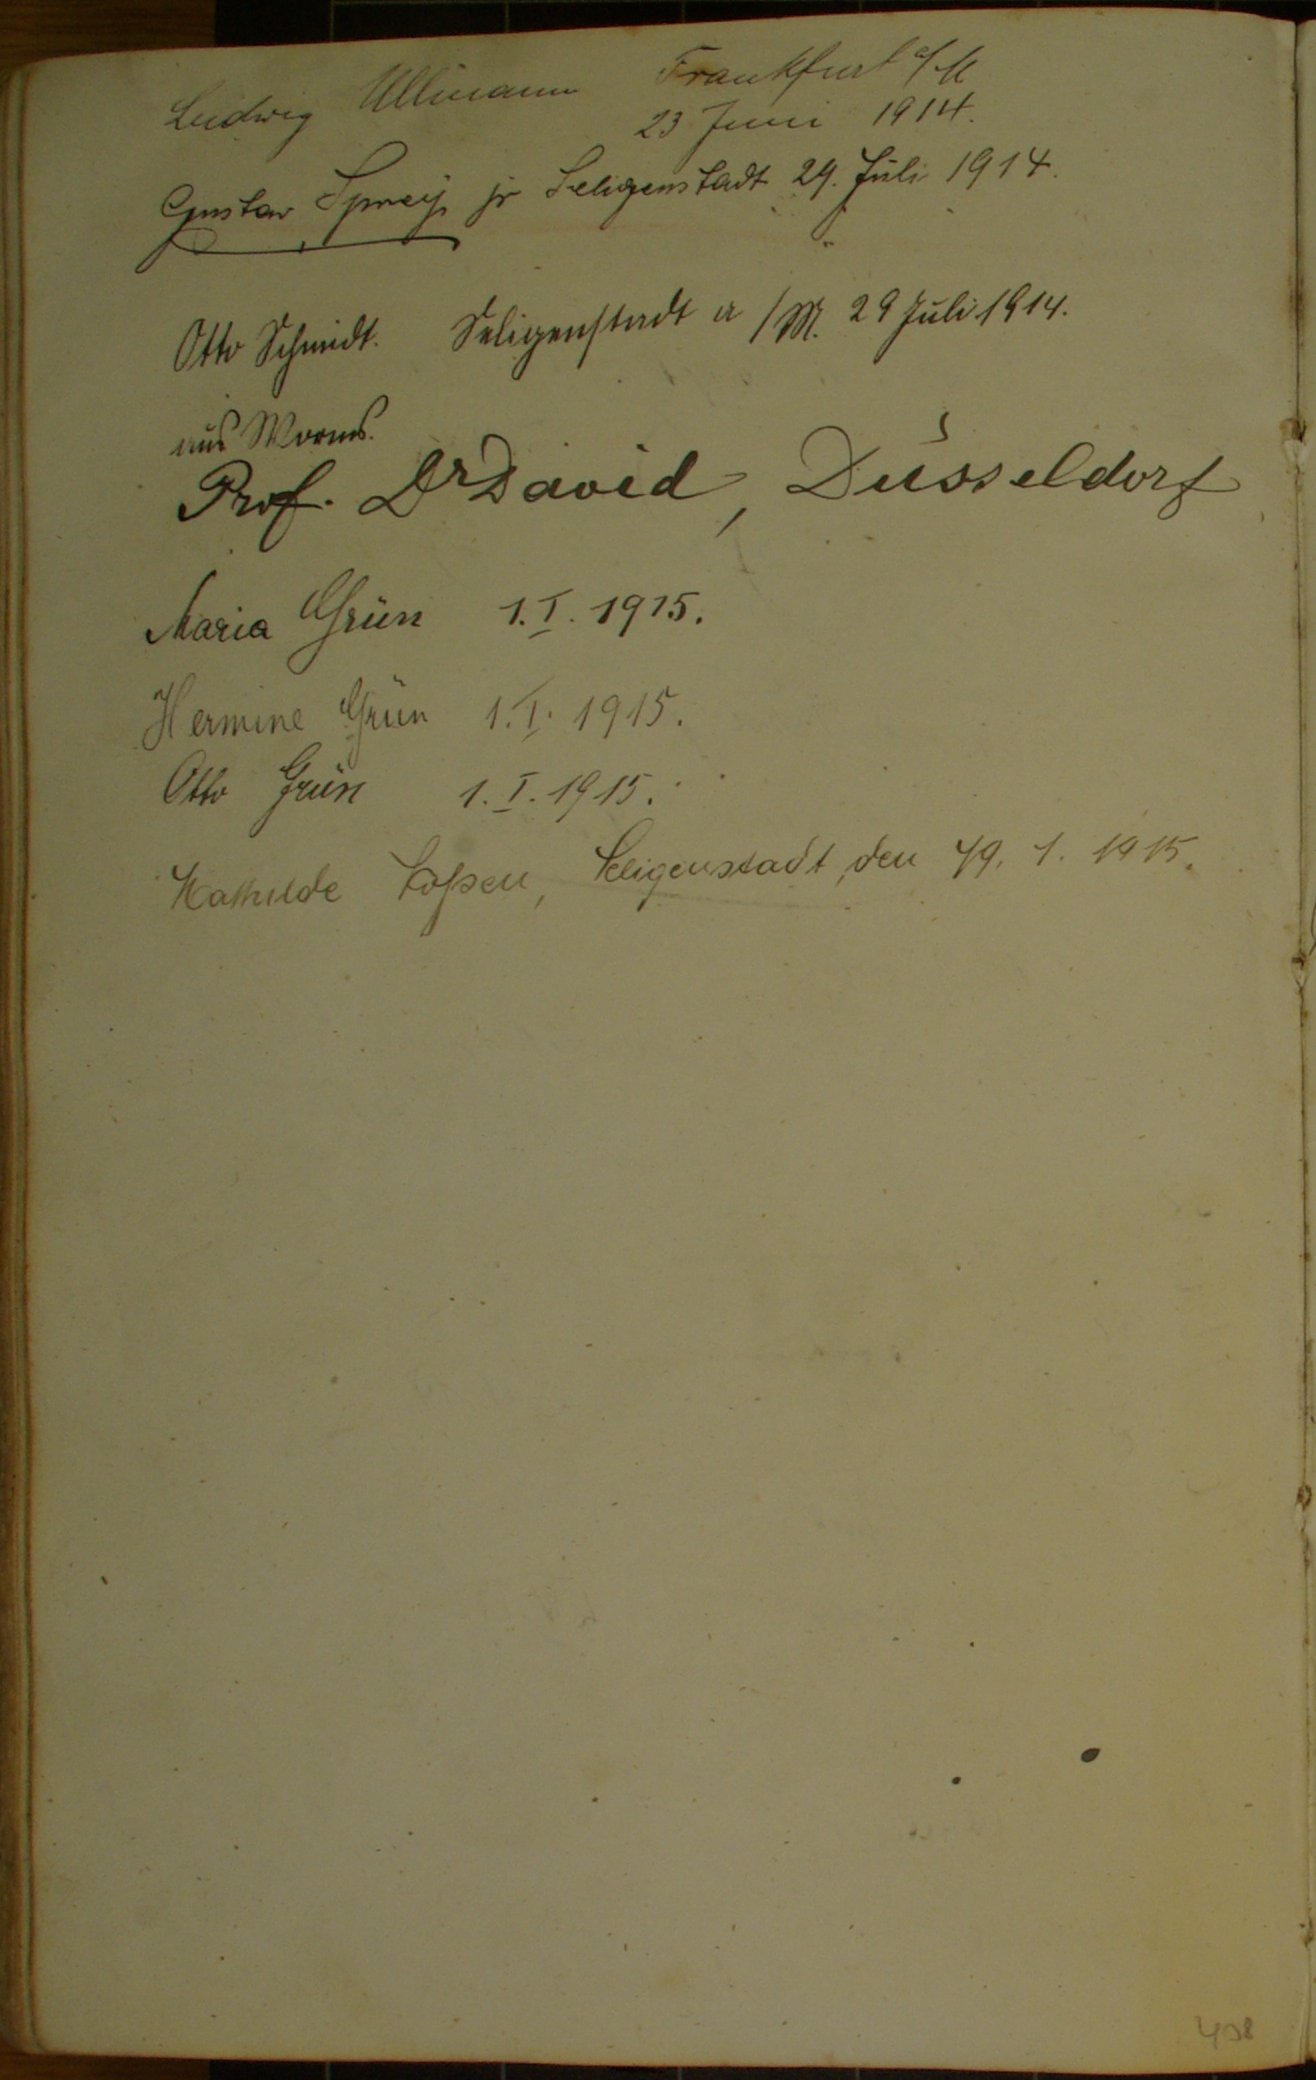 Ludwig Ullmann Frankfurt a/M
23 Juni 1914.
Gustav jr Seligenstadt 29. Juli 1914.
Otto Schmidt. Seligenstadt a/M. 29 Juli 1914.
aus Worms.
Prof. Dr David, Düsseldorf
Maria Grün 1.I.1915.
Hermine Grün 1.I.1915.
Otto Grün 1.I.1915.
Mathilde Seligenstadt, den 1. 1915.
408